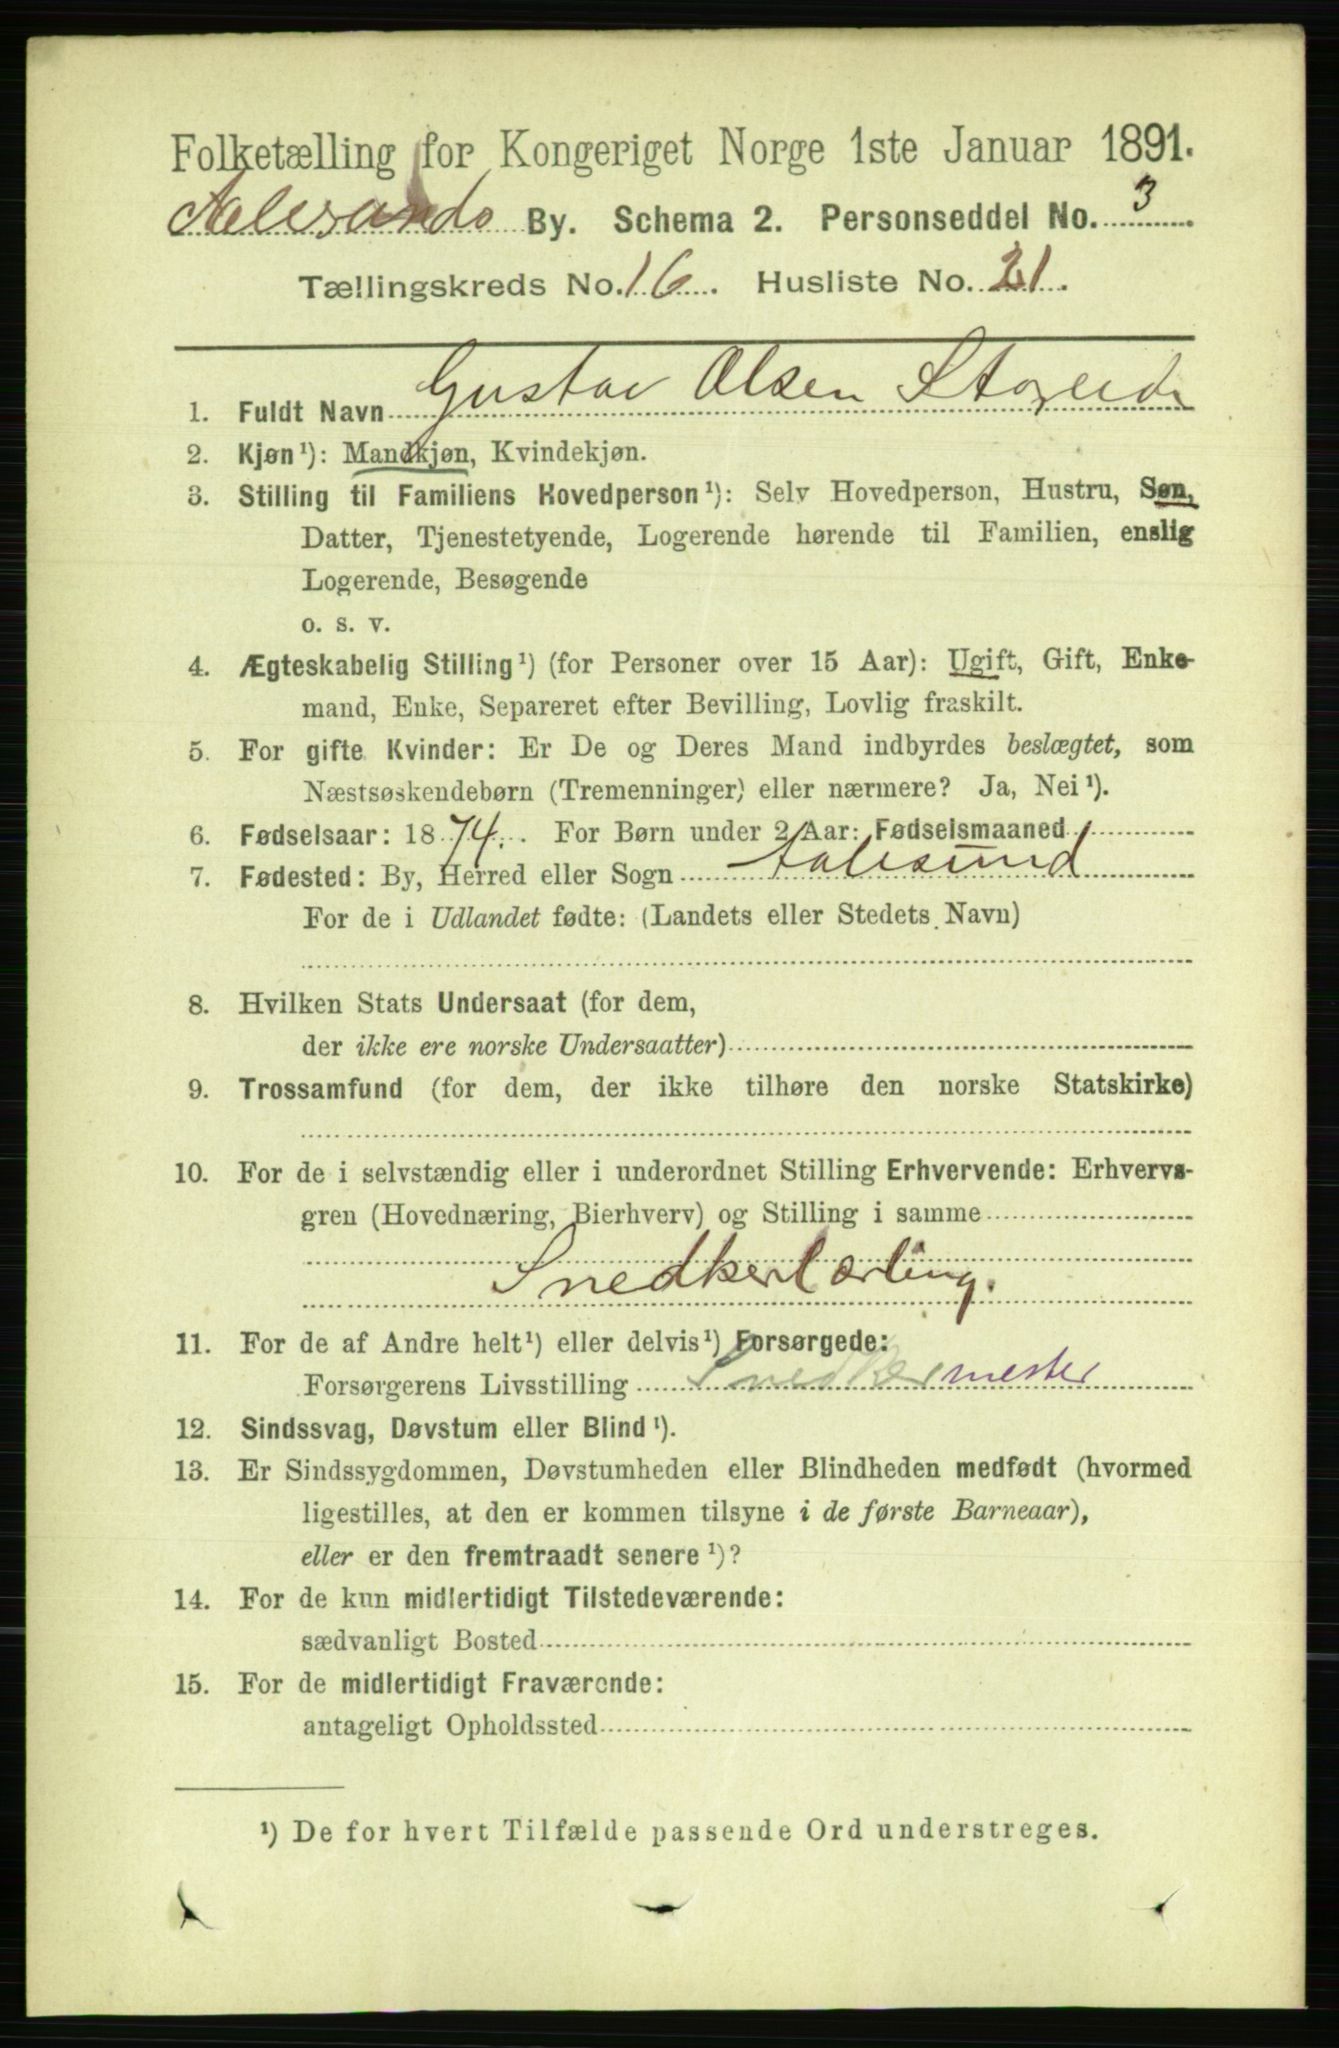 Folketælling for Kongeriget Norge 1ste Januar 1891.
Aalesunds By. Schema 2. Personseddel No. 3
Tællingskreds No. 16. Husliste No. 21.
1. Fuldt Navn Gustav Olsen
2. Kjøn¹): Mandkjøn, Kvindekjøn.
3. Stilling til Familiens Hovedperson¹): Selv Hovedperson, Hustru, Søn,
Datter, Tjenestetyende, Logerende hørende til Familien, enslig
Logerende, Besøgende
o. s. v.
4. Ægteskabelig Stilling¹) (for Personer over 15 Aar): Ugift, Gift, Enke-
mand, Enke, Separeret efter Bevilling, Lovlig fraskilt.
5. For gifte Kvinder: Er De og Deres Mand indbyrdes beslægtet, som
Næstsøskendebørn (Tremenninger) eller nærmere? Ja, Nei¹).
6. Fødselsaar: 1874. For Børn under 2 Aar: Fødselsmaaned
7. Fødested: By, Herred eller Sogn Aalesund
For de i Udlandet fødte: (Landets eller Stedets Navn)
8. Hvilken Stats Undersaat (for dem,
der ikke ere norske Undersaatter)
9. Trossamfund (for dem, der ikke tilhøre den norske Statskirke)
10. For de i selvstændig eller i underordnet Stilling Erhvervende: Erhvervs-
gren (Hovednæring, Bierhverv) og Stilling i samme
Snedkerlærling.
11. For de af Andre helt¹) eller delvis¹) Forsørgede:
Forsørgerens Livsstilling Snedkermester
12. Sindssvag, Døvstum eller Blind¹).
13. Er Sindssygdommen, Døvstumheden eller Blindheden medfødt (hvormed
ligestilles, at den er kommen tilsyne i de første Barneaar),
eller er den fremtraadt senere¹)?
14. For de kun midlertidigt Tilstedeværende:
sædvanligt Bosted
15. For de midlertidigt Fraværende:
antageligt Opholdssted
¹) De for hvert Tilfælde passende Ord understreges.